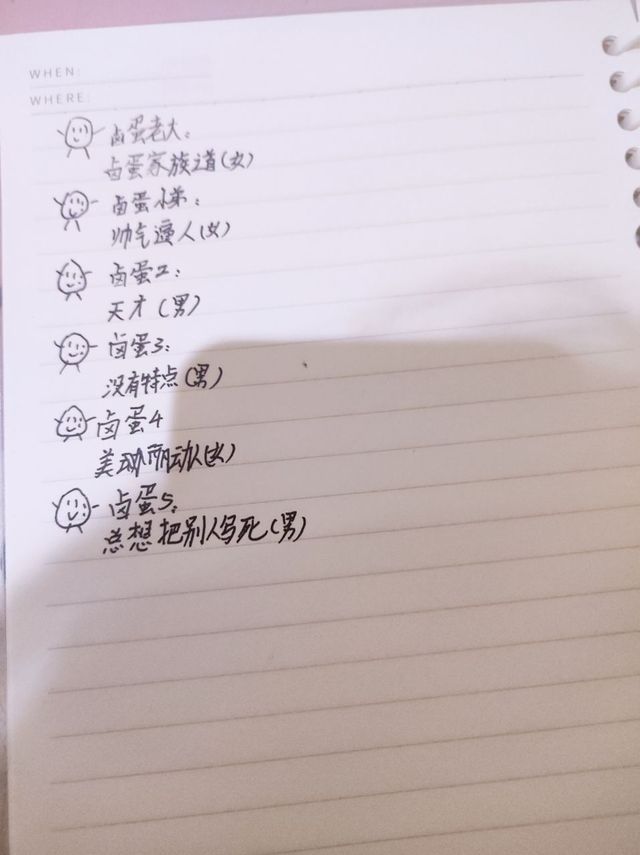 WHEN:
WHERE:
卤蛋老大:
卤蛋家族道(女)
卤蛋小弟:
帅气逼人(女)
卤蛋2:
天才(男)
卤蛋3:
没有特点(男)
卤蛋4
美动人(女)
卤蛋5:
总想把别人写死(男)